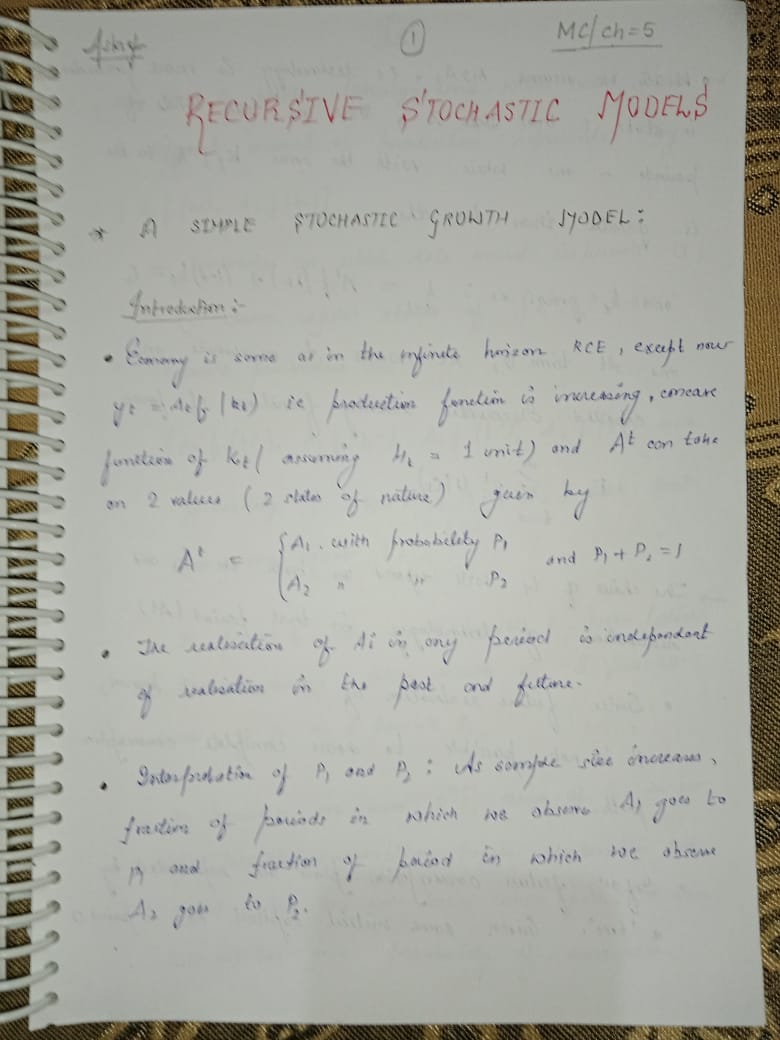 ①
MC/ch=5
RECURSIVE STOCHASTIC MODELS
* A SIMPLE STOCHASTIC GROWTH MODEL:
Introduction:-
• Economy is same as in the infinite horizon RCE, except now
yt = At f(kt) ie production function is increasing, concave
function of Kt (assuming Ht = 1 unit) and A^t can take
on 2 values (2 states of nature) given by
A^t = { A1 with probability P1 and P1 + P2 = 1
A2 " " P2
• The realisation of Ai in any period is independent
of realisation in the past and future.
• Interpretation of P1 and P2: As sample size increases,
fraction of periods in which we observe A1 goes to
P1 and fraction of period in which we observe
A2 goes to P2.